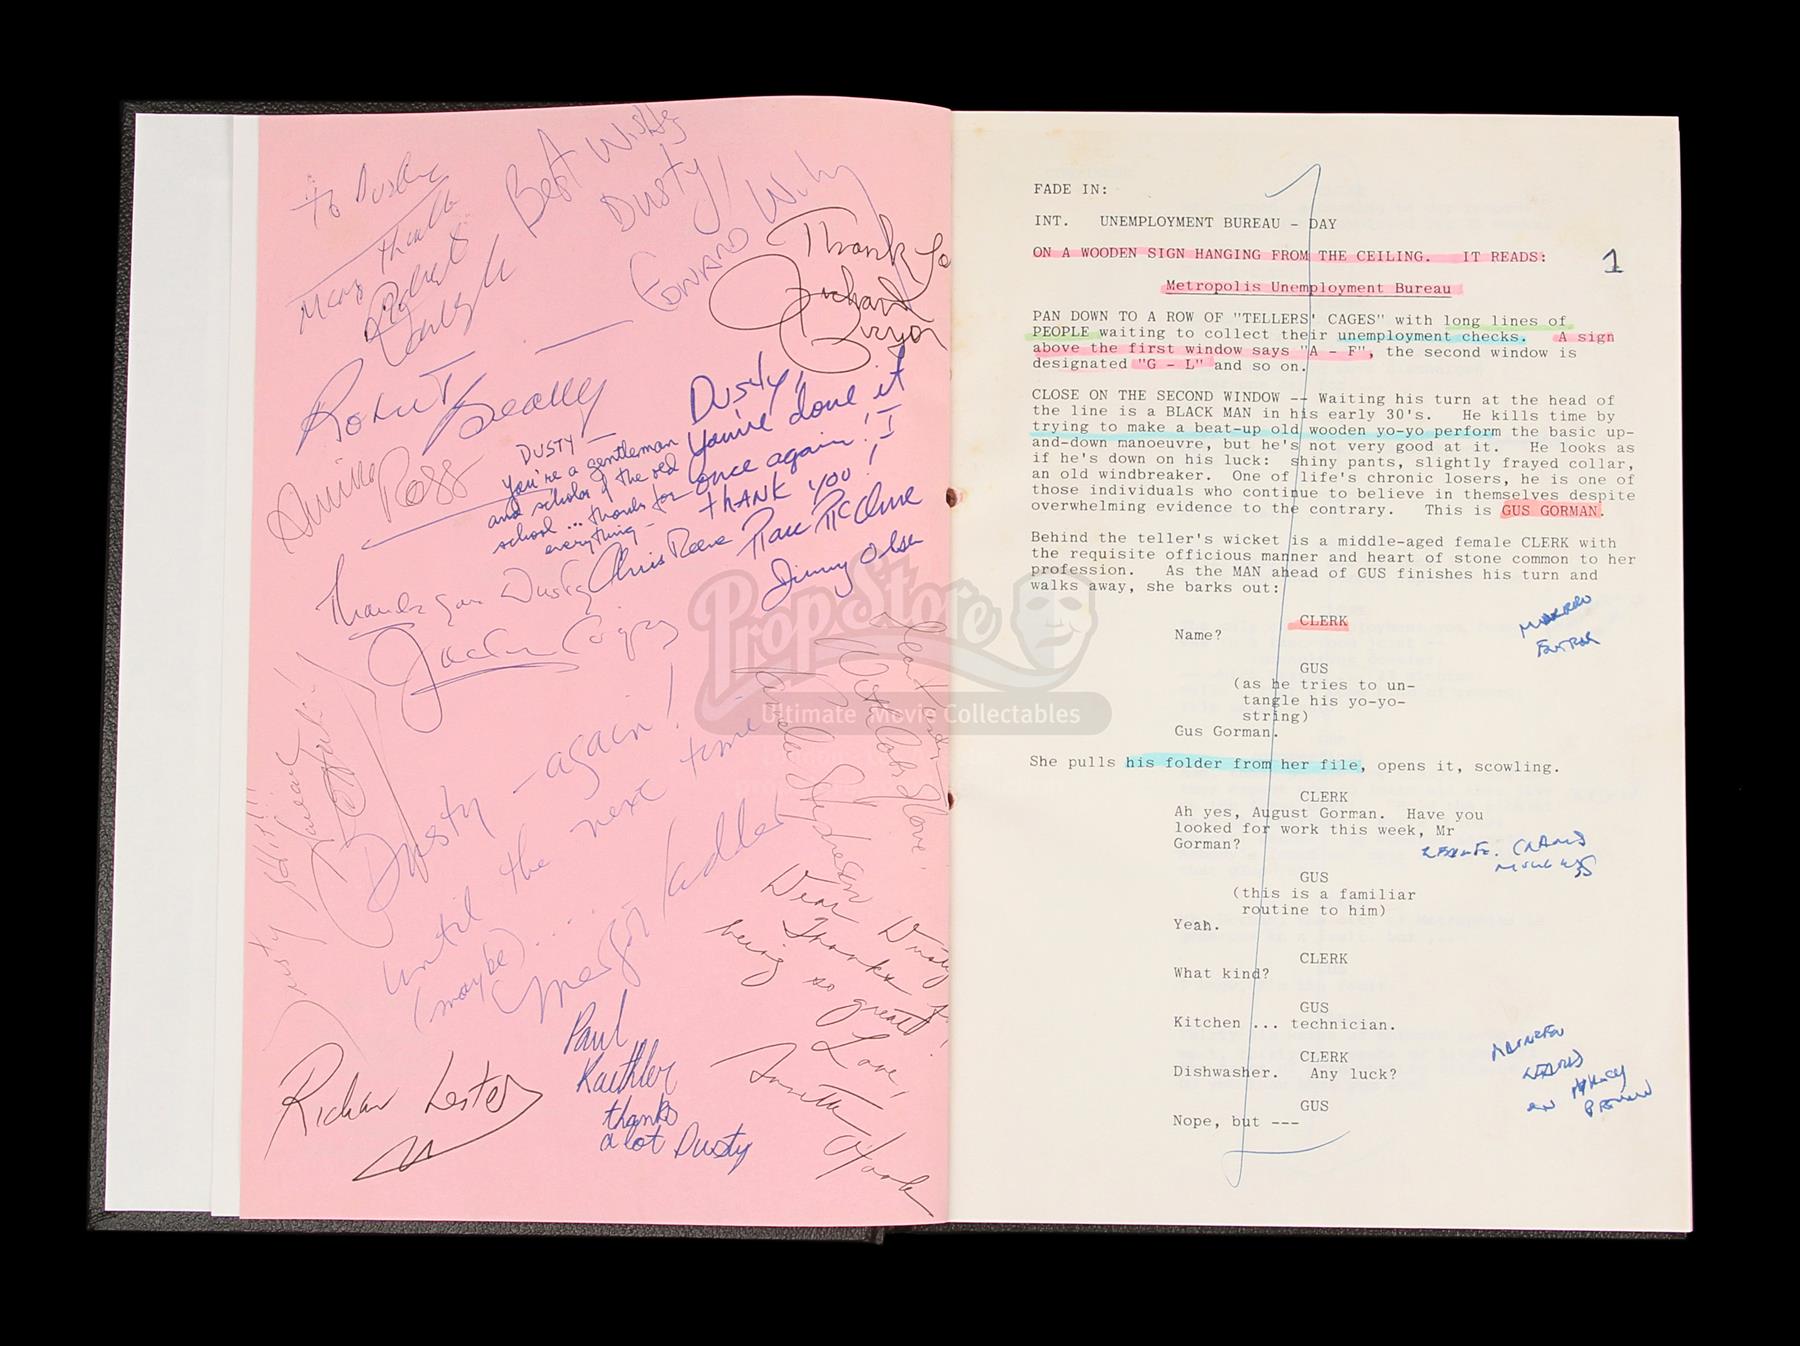 To Dusty
Many thanks
Robert
Best Wishes
Dusty
EDWARD Wiley
Thank Yo
Richard
Pryor
Robert Beatty
Annie Ross
DUSTY —
You're a gentleman
and scholar of the old
school ... thanks for
everything —
Chris Reeve
Dusty,
You've done it
once again! I
THANK YOU!
Marc McClure
Jimmy Olsen
Thank you Dusty
Jackie Cooper
Dusty — again!
until the next time
(maybe) ....
Margot
Pamela Stephenson
Dear Dusty
Thanks for
being so great!
Love,
Annette O'Toole
Richard Lester
Paul
Kaethler
thanks
a lot Dusty
PropStore
Ultimate Movie Collectables
1
FADE IN:
INT. UNEMPLOYMENT BUREAU - DAY
ON A WOODEN SIGN HANGING FROM THE CEILING. IT READS:
1
Metropolis Unemployment Bureau
PAN DOWN TO A ROW OF "TELLERS' CAGES" with long lines of
PEOPLE waiting to collect their unemployment checks. A sign
above the first window says "A - F", the second window is
designated "G - L" and so on.
CLOSE ON THE SECOND WINDOW -- Waiting his turn at the head of
the line is a BLACK MAN in his early 30's. He kills time by
trying to make a beat-up old wooden yo-yo perform the basic up-
and-down manoeuvre, but he's not very good at it. He looks as
if he's down on his luck: shiny pants, slightly frayed collar,
an old windbreaker. One of life's chronic losers, he is one of
those individuals who continue to believe in themselves despite
overwhelming evidence to the contrary. This is GUS GORMAN.
Behind the teller's wicket is a middle-aged female CLERK with
the requisite officious manner and heart of stone common to her
profession. As the MAN ahead of GUS finishes his turn and
walks away, she barks out:
CLERK
Name?
GUS
(as he tries to un-
tangle his yo-yo-
string)
Gus Gorman.
She pulls his folder from her file, opens it, scowling.
CLERK
Ah yes, August Gorman. Have you
looked for work this week, Mr
Gorman?
GUS
(this is a familiar
routine to him)
Yeah.
CLERK
What kind?
GUS
Kitchen ... technician.
CLERK
Dishwasher. Any luck?
GUS
Nope, but ---